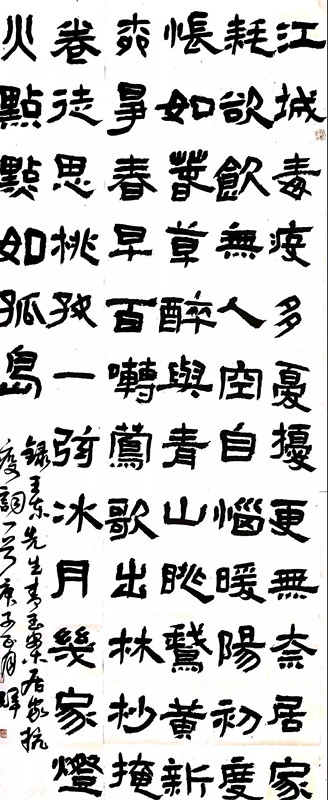 江城毒疫多憂擾更無奈居家
耗欲飲無人空自惱暖陽初度
悵如萅草醉與青山眺鵞黃新
爭春早百囀鶯歌出林杪掩
卷徒思桃一弦冰月幾家燈
火點點如孤島
錄王東先生青玉案居家抗
疫詞一首庚子正月輝